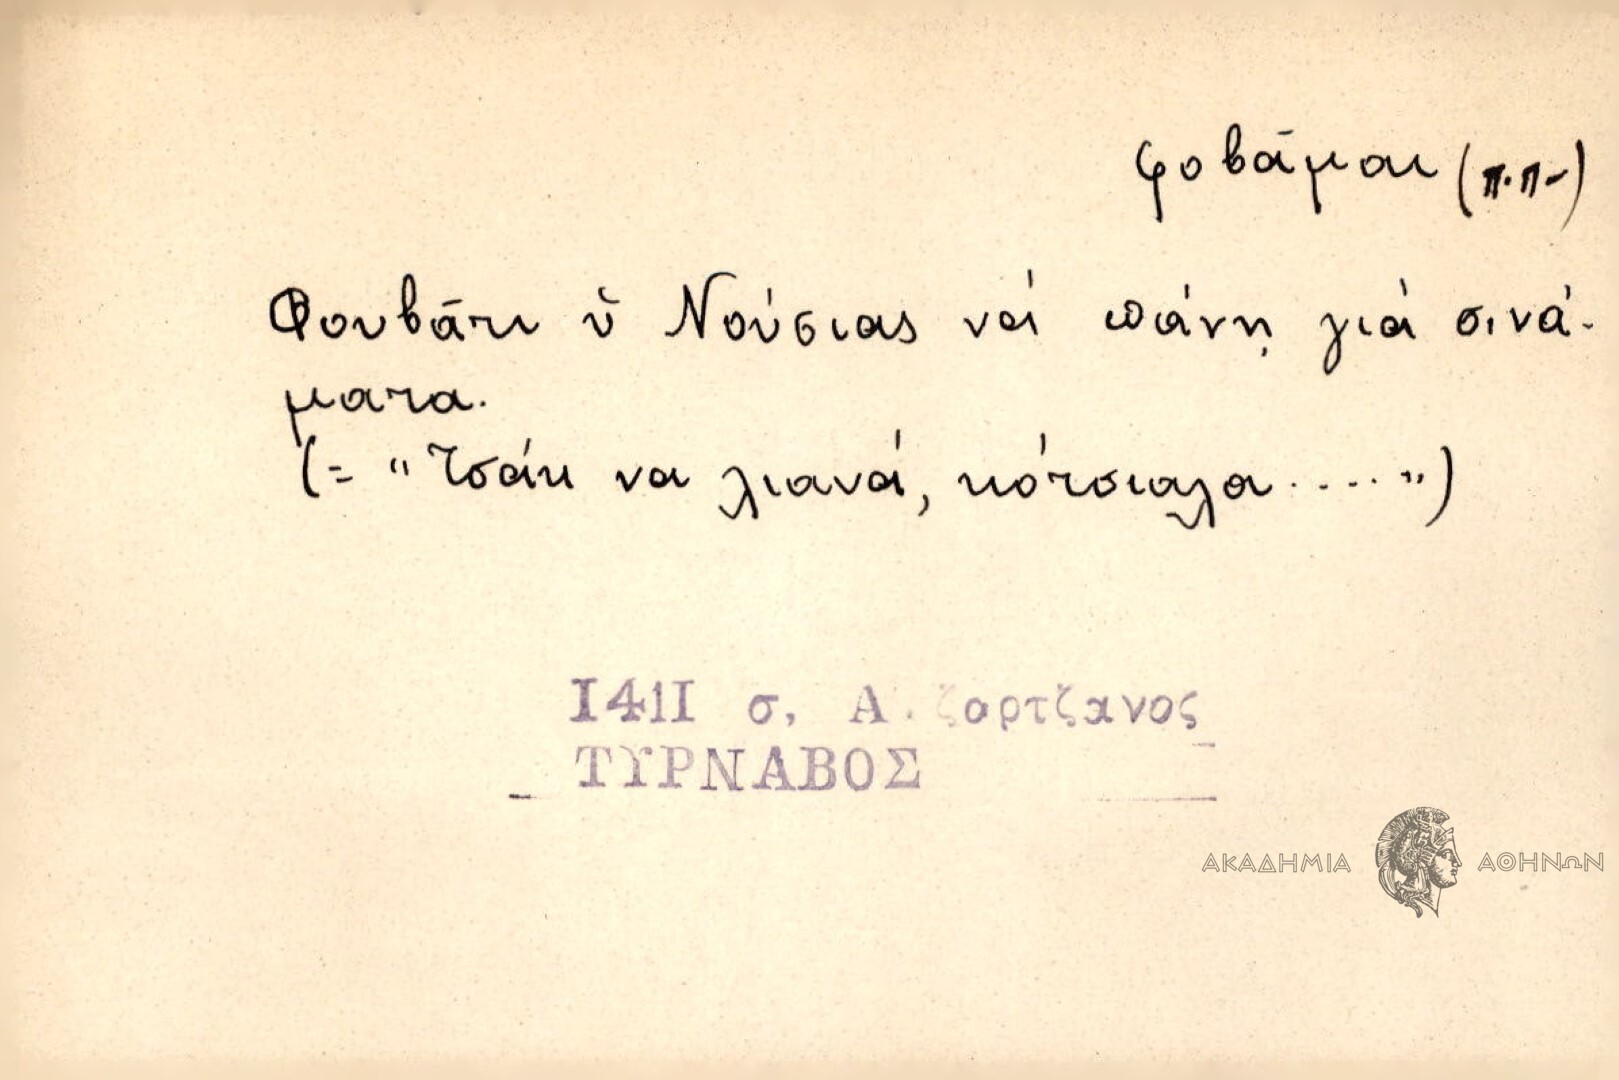 φοβᾶμαι (π.π.)
Φουβᾶτι ὑ Νούσιας νά πάνῃ γιά σινά-
ματα.
(= "Τσάκ να λιανά, κότσιαλα ..... ")
1411 σ. Α. Τζαρτζανος
ΤΥΡΝΑΒΟΣ
ΑΚΑΔΗΜΙΑ ΑΘΗΝΩΝ